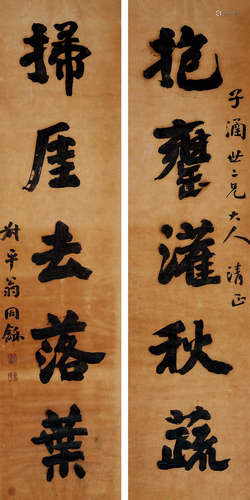 抱甕灌秋蔬
子涵世二兄大人清正
掃厓去落葉
叔平翁同龢